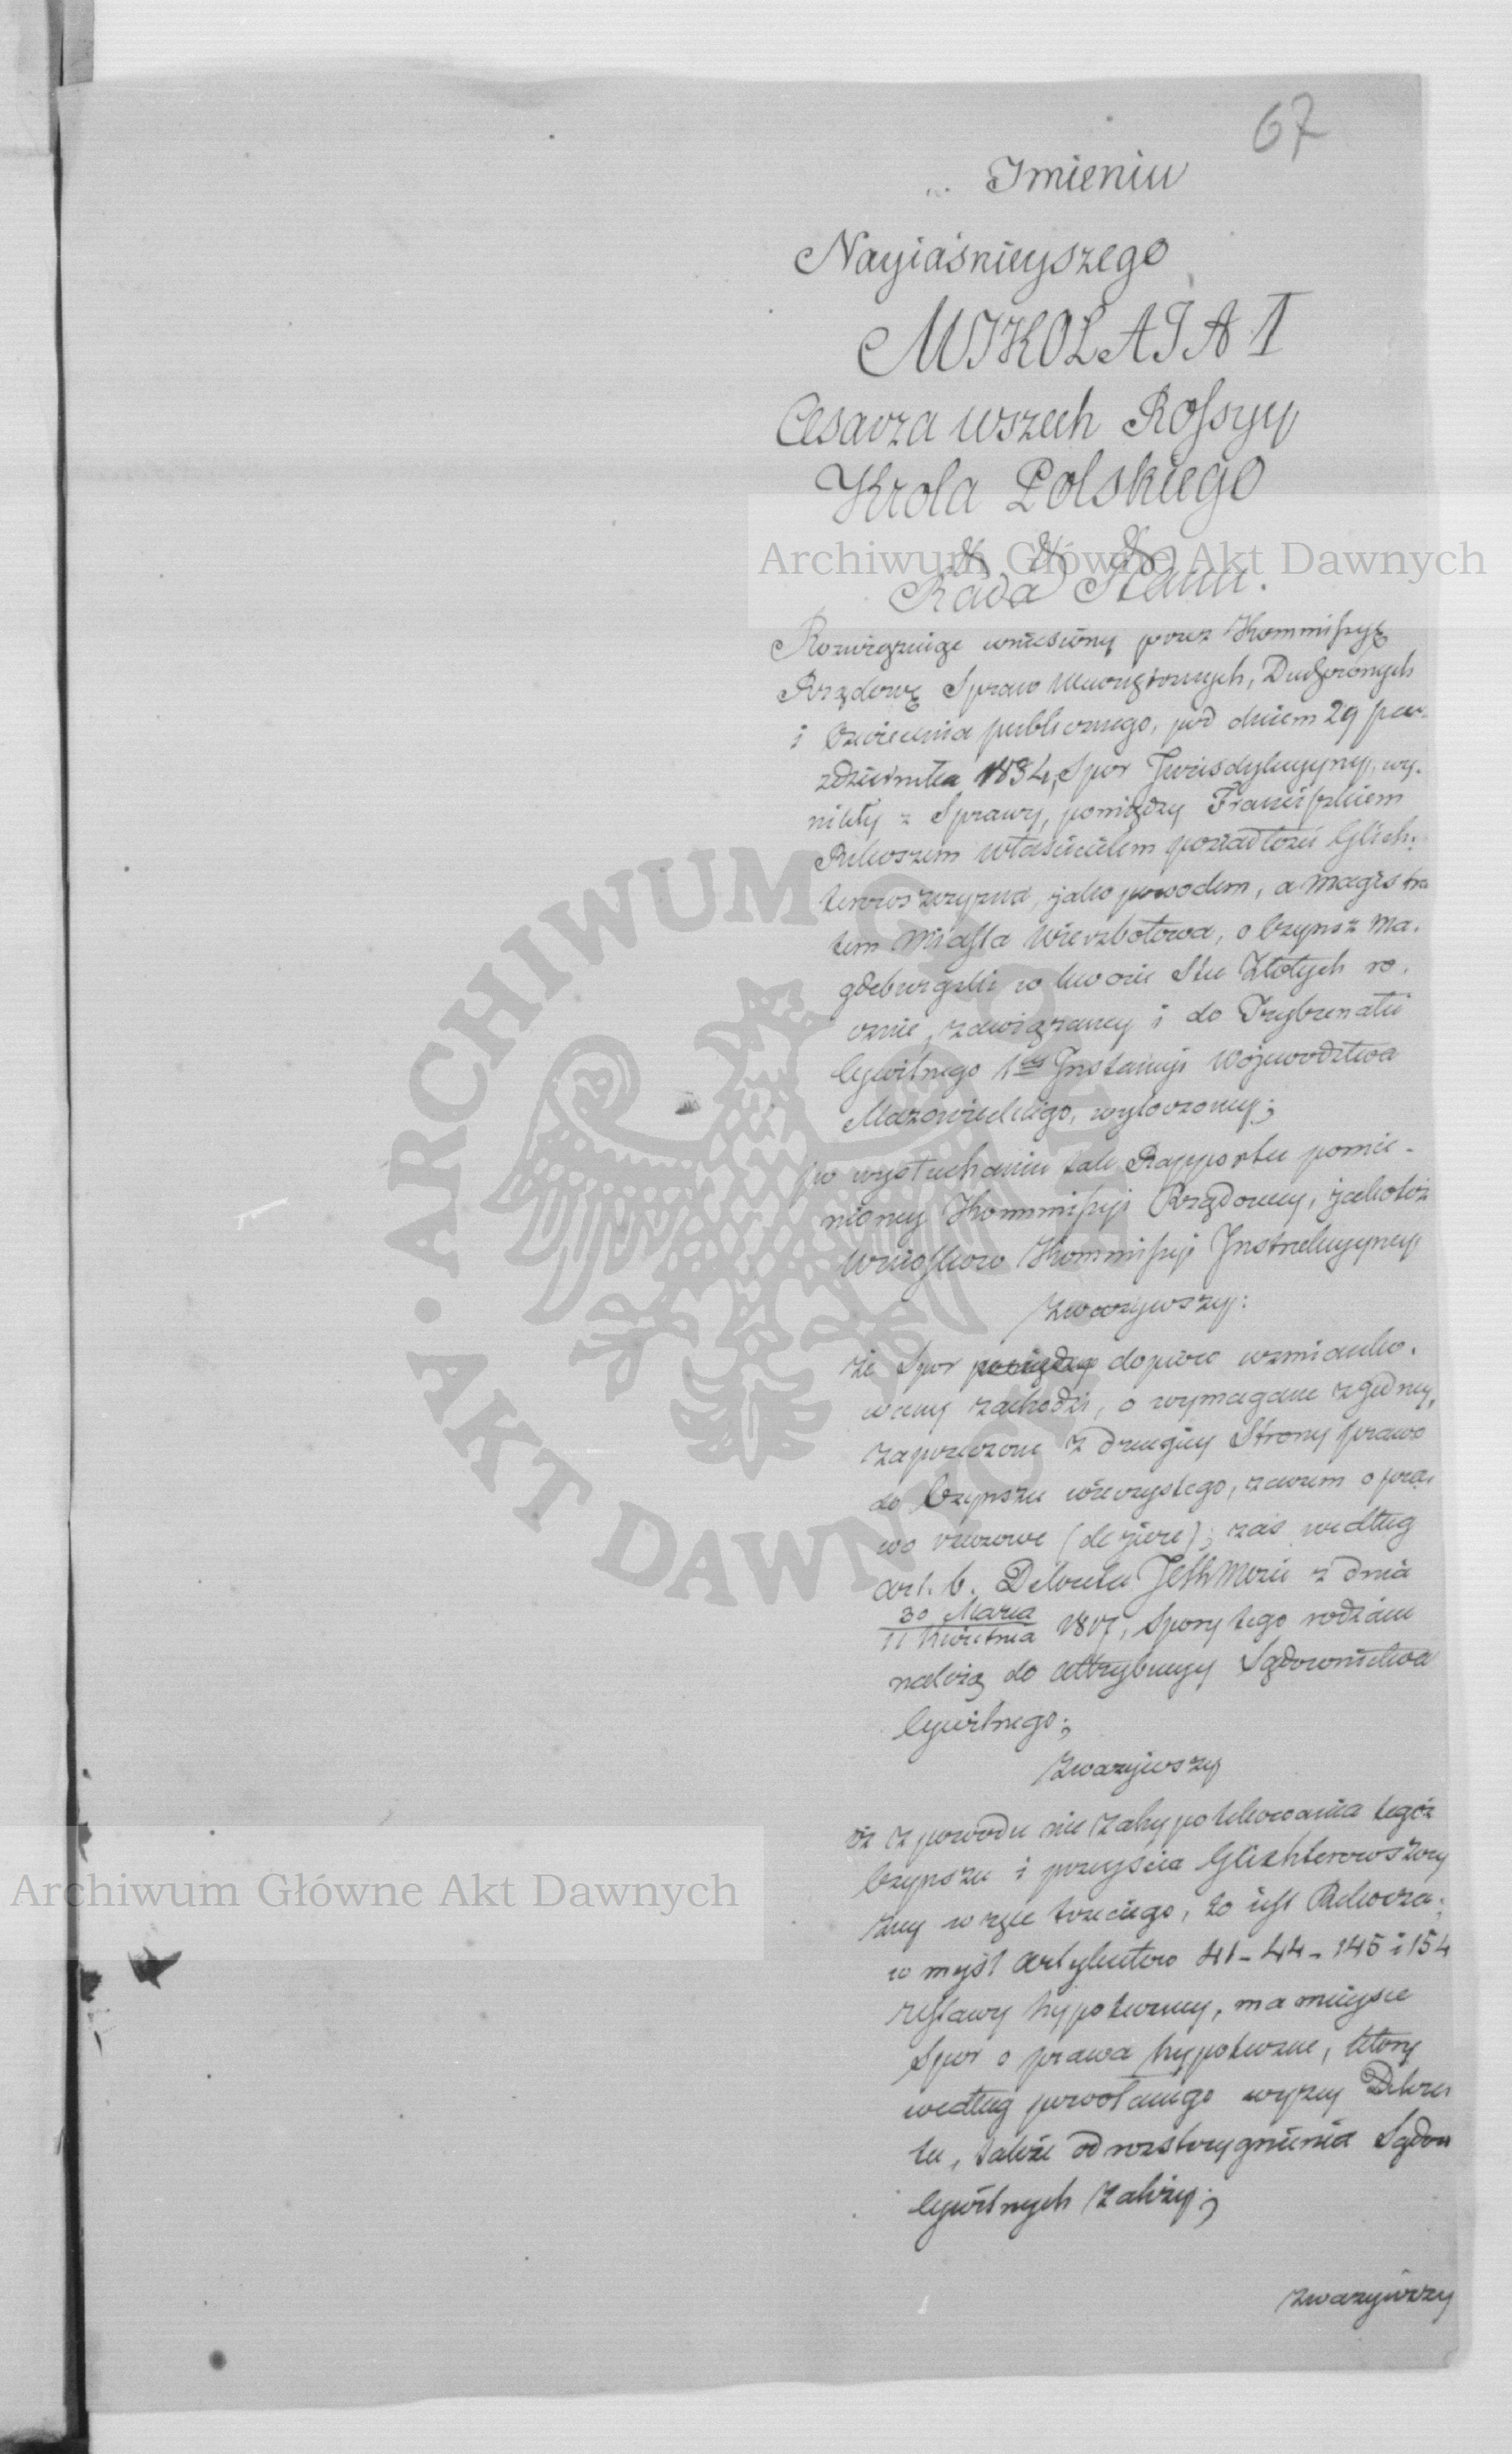 67
Imieniu
Nayiaśnieyszego
MIKOŁAIA I
Cesarza wszech Rossyy
Krola Polskiego
& & &
Rada Stanu.
Rozwiązuiąc wniesiony przez Kommissyą
Rządową Spraw Wewnętrznych, Duchownych
i Oświecenia publicznego, pod dniem 29 paź-
dziernika 1834, Spor Jurisdykcyyny, wy-
nikły z Sprawy, pomiędzy Franciszkiem
właścicielem posiadłości Glich-
terowszczyzna, jako powodem, a Magistra
tem Miasta Wierzbołowa, o Czynsz Ma-
gdeburgski w kwocie Stu Złotych ro-
cznie, zawiązaney i do Trybunału
Cywilnego 1ey Instancyi Wojewodztwa
Mazowieckiego, wytoczoney;
po wysłuchaniu tak Rapportu pomie-
nioney Kommissyi Rządowey, jakoteż
wniosków Kommissyi Instrukcyyney
Zważywszy:
że Spor pomiędzy dopiero wzmianko-
wany zachodzi, o wymagane z jedney,
zaprzeczone z drugiey Strony prawo
do Czynszu wieczystego, zatem o pra-
wo rzeczowe (de jure); zaś według
art. 6. Dekretu JESKMości z dnia
30 Marca
11 Kwietnia 1817, Spory tego rodzaiu
należą do attrybucyy Sądownictwa
Cywilnego;
Zważywszy
iż z powodu nie zahypotekowania tegoż
Czynszu i przeyścia Glichterowszczy
zny w ręce trzeciego, to iest
w myśl Artykułów 41-44-145 i 154
Ustawy hypoteczney, ma mieysce
Spor o prawa hypoteczne, ktory
według powołanego wyżey Dekre
tu, także od rozstrzygnienia Sądow
Cywilnych zależy;
Zważywszy
Archiwum Główne Akt Dawnych
Archiwum Główne Akt Dawnych
ARCHIWUM GŁÓWNE · AKT DAWNYCH